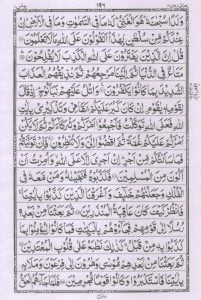 وَلَدًا سُبْحٰنَهٗ هُوَ الْغَنِيُّ لَهٗ مَا فِي السَّمٰوٰتِ وَمَا فِي الْاَرْضِ
اِنْ عِنْدَكُمْ مِّنْ سُلْطٰنٍۭ بِهٰذَا اَتَقُوْلُوْنَ عَلَى اللّٰهِ مَا لَا تَعْلَمُوْنَ
قُلْ اِنَّ الَّذِيْنَ يَفْتَرُوْنَ عَلَى اللّٰهِ الْكَذِبَ لَا يُفْلِحُوْنَ
مَتَاعٌ فِي الدُّنْيَا ثُمَّ اِلَيْنَا مَرْجِعُهُمْ ثُمَّ نُذِيْقُهُمُ الْعَذَابَ
الشَّدِيْدَ بِمَا كَانُوْا يَكْفُرُوْنَ وَاتْلُ عَلَيْهِمْ نَبَاَ نُوْحٍ اِذْ قَالَ
لِقَوْمِهٖ يٰقَوْمِ اِنْ كَانَ كَبُرَ عَلَيْكُمْ مَّقَامِيْ وَتَذْكِيْرِيْ بِاٰيٰتِ
اللّٰهِ فَعَلَى اللّٰهِ تَوَكَّلْتُ فَاَجْمِعُوْٓا اَمْرَكُمْ وَشُرَكَآءَكُمْ ثُمَّ لَا يَكُنْ
اَمْرُكُمْ عَلَيْكُمْ غُمَّةً ثُمَّ اقْضُوْٓا اِلَيَّ وَلَا تُنْظِرُوْنِ فَاِنْ تَوَلَّيْتُمْ
فَمَا سَاَلْتُكُمْ مِّنْ اَجْرٍ اِنْ اَجْرِيَ اِلَّا عَلَى اللّٰهِ وَاُمِرْتُ اَنْ
اَكُوْنَ مِنَ الْمُسْلِمِيْنَ فَكَذَّبُوْهُ فَنَجَّيْنٰهُ وَمَنْ مَّعَهٗ فِي
الْفُلْكِ وَجَعَلْنٰهُمْ خَلٰٓئِفَ وَاَغْرَقْنَا الَّذِيْنَ كَذَّبُوْا بِاٰيٰتِنَا
فَانْظُرْ كَيْفَ كَانَ عَاقِبَةُ الْمُنْذَرِيْنَ ثُمَّ بَعَثْنَا مِنْۢ بَعْدِهٖ
رُسُلًا اِلٰى قَوْمِهِمْ فَجَآءُوْهُمْ بِالْبَيِّنٰتِ فَمَا كَانُوْا لِيُؤْمِنُوْا
بِمَا كَذَّبُوْا بِهٖ مِنْ قَبْلُ كَذٰلِكَ نَطْبَعُ عَلٰى قُلُوْبِ الْمُعْتَدِيْنَ
ثُمَّ بَعَثْنَا مِنْۢ بَعْدِهِمْ مُّوْسٰى وَهٰرُوْنَ اِلٰى فِرْعَوْنَ وَمَلَا۟ئِهٖ
بِاٰيٰتِنَا فَاسْتَكْبَرُوْا وَكَانُوْا قَوْمًا مُّجْرِمِيْنَ فَلَمَّا جَآءَهُمُ الْحَقُّ